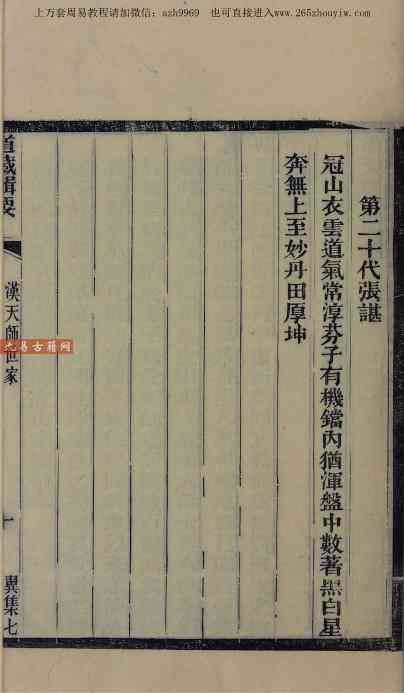 上万套周易教程请加微信：azh9969 也可直接进入www.265zhouyiw.com
第二十代張諶
冠山衣雲道氣常淳芬子有機鐺內猶渾盤中數著黑白星
奔無上至妙丹田厚坤
道藏輯要
漢天師世家
一
異集七
九易古籍网